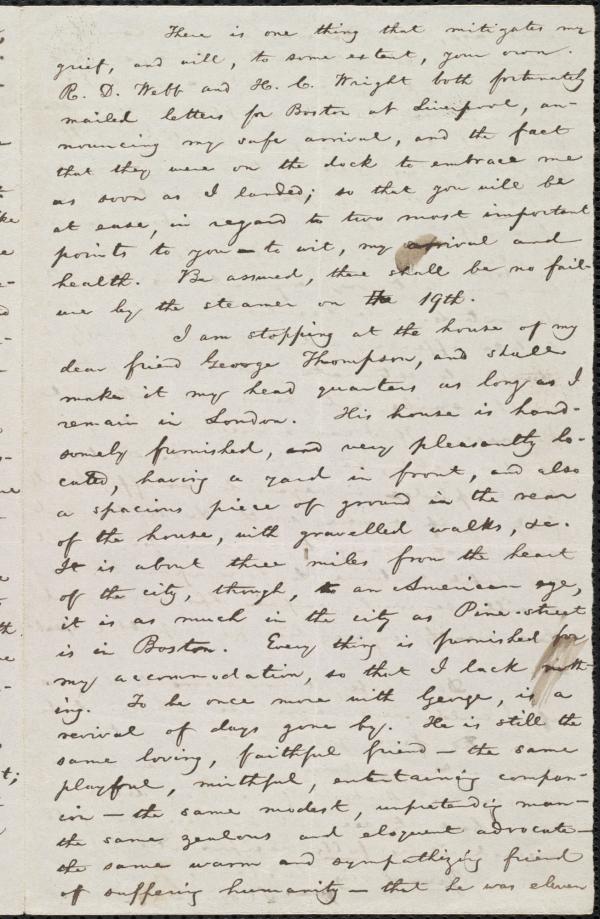 There is one thing that mitigates my
grief, and will, to some extent, your own.
R. D. Webb and H. C. Wright both fortunately
mailed letters for Boston at Liverpool, an-
nouncing my safe arrival, and the fact
that they were on the dock to embrace me
as soon as I landed; so that you will be
at ease, in regard to two most important
points to you — to wit, my arrival and
health. Be assured, there shall be no fail-
ure by the steamer on the 19th.
I am stopping at the house of my
dear friend George Thompson, and shall
make it my head quarters as long as I
remain in London. His house is hand-
somely furnished, and very pleasantly lo-
cated, having a yard in front, and also
a spacious piece of ground in the rear
of the house, with gravelled walks, &c.
It is about three miles from the heart
of the city, though, to an American eye,
it is as much in the city as Pine-street
is in Boston. Every thing is furnished for
my accommodation, so that I lack noth-
ing. To be once more with George, is a
revival of days gone by. He is still the
same loving, faithful friend — the same
playful, mirthful, entertaining compan-
ion — the same modest, unpretending man —
the same zealous and eloquent advocate —
the same warm and sympathizing friend
of suffering humanity — that he was eleven